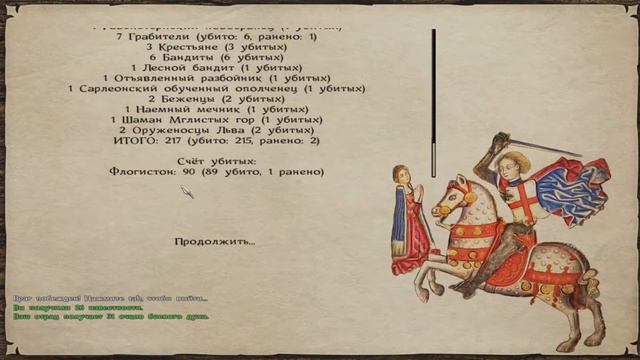 7 Грабители (убито: 6, ранено: 1)
3 Крестьяне (3 убитых)
6 Бандиты (6 убитых)
1 Лесной бандит (1 убитых)
1 Отъявленный разбойник (1 убитых)
1 Сарлеонский обученный ополченец (1 убитых)
2 Беженцы (2 убитых)
1 Наемный мечник (1 убитых)
1 Шаман Мглистых гор (1 убитых)
2 Оруженосцы Льва (2 убитых)
ИТОГО: 217 (убито: 215, ранено: 2)
Счёт убитых:
Флогистон: 90 (89 убито, 1 ранено)
Продолжить...
Враг побежден! Нажмите tab, чтобы выйти...
Вы получили 26 известности.
Ваш отряд получает 31 очков боевого духа.